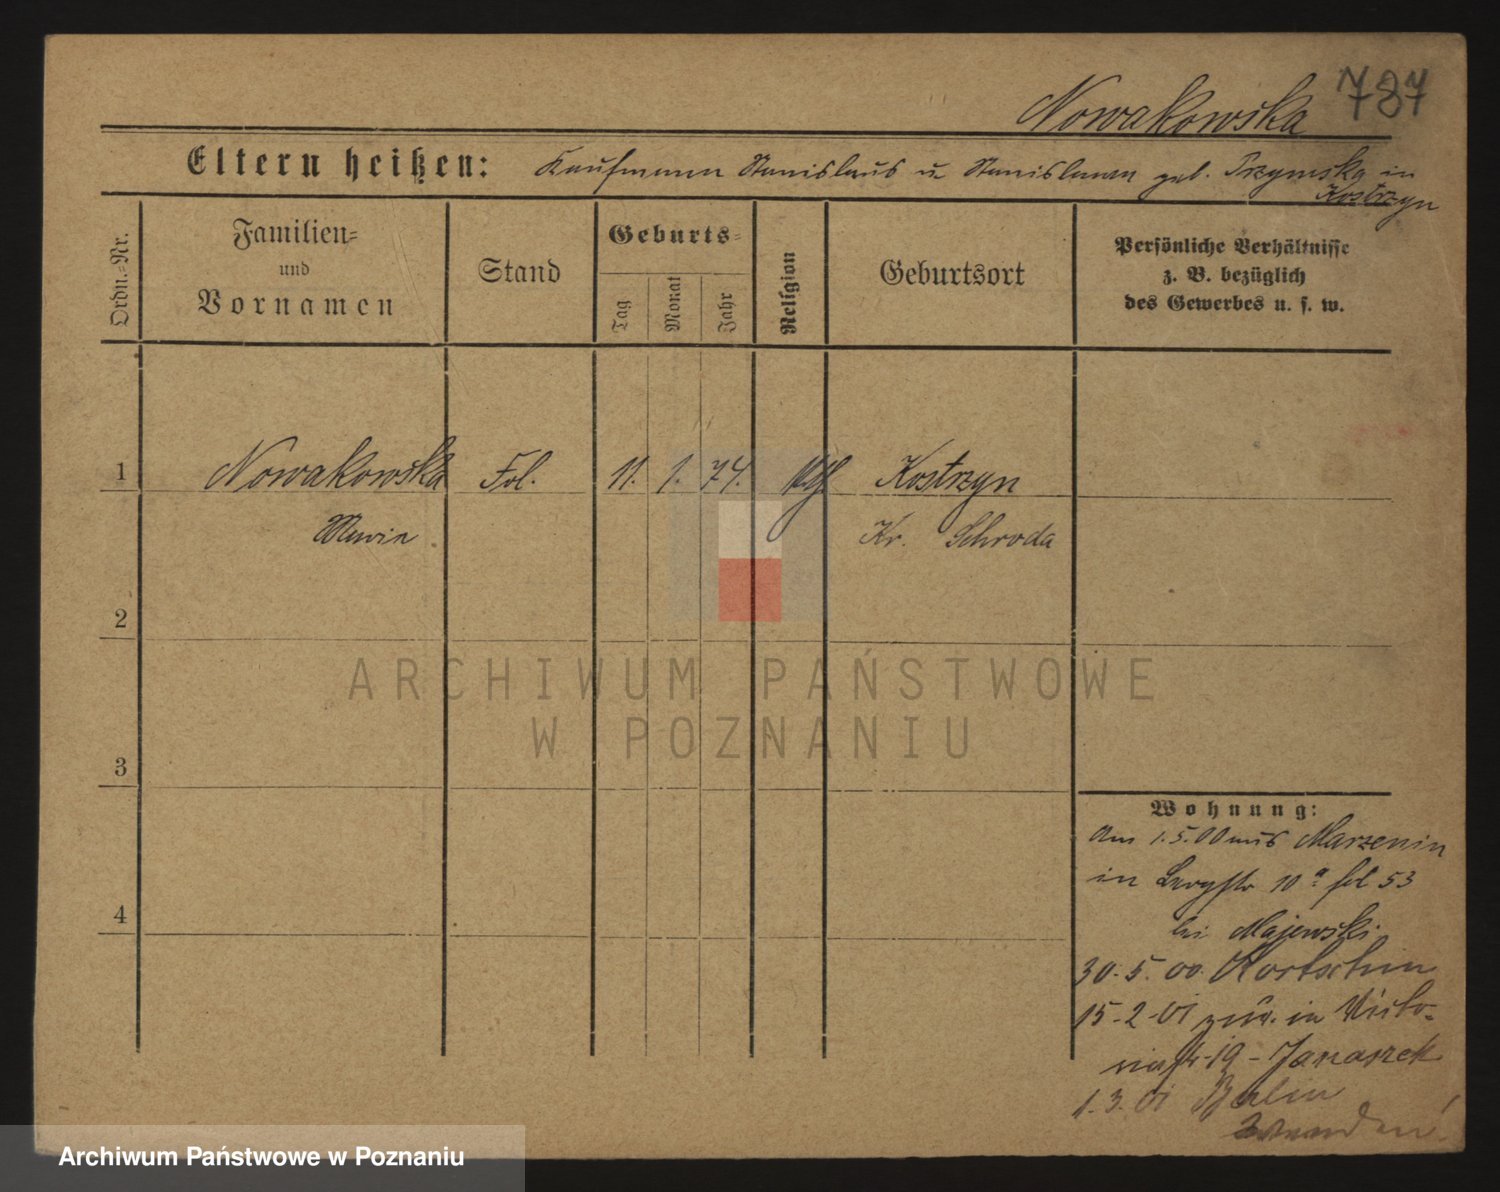 Nowakowska 787
Eltern heißen: Kaufmann Stanislaus u Stanislawa geb. Trzymska in
Kostrzyn
Ordn.-Nr.
Familien-
und
Vornamen
Stand
Geburts-
Tag
Monat
Jahr
Religion
Geburtsort
Persönliche Verhältnisse
z. B. bezüglich
des Gewerbes u. s. w.
1 Nowakowska Frl. 11. 1. 74. Kostrzyn
Maria Kr. Schroda
2
ARCHIWUM PAŃSTWOWE
W POZNANIU
3
4
Wohnung:
Am 1.5.00 aus Marzenin
in 10 a bei 53
bei Majewski
30.5.00.
15-2-01 zur. in Victo-
riastr-19- Janaszek
1.3.01 Berlin
Archiwum Państwowe w Poznaniu